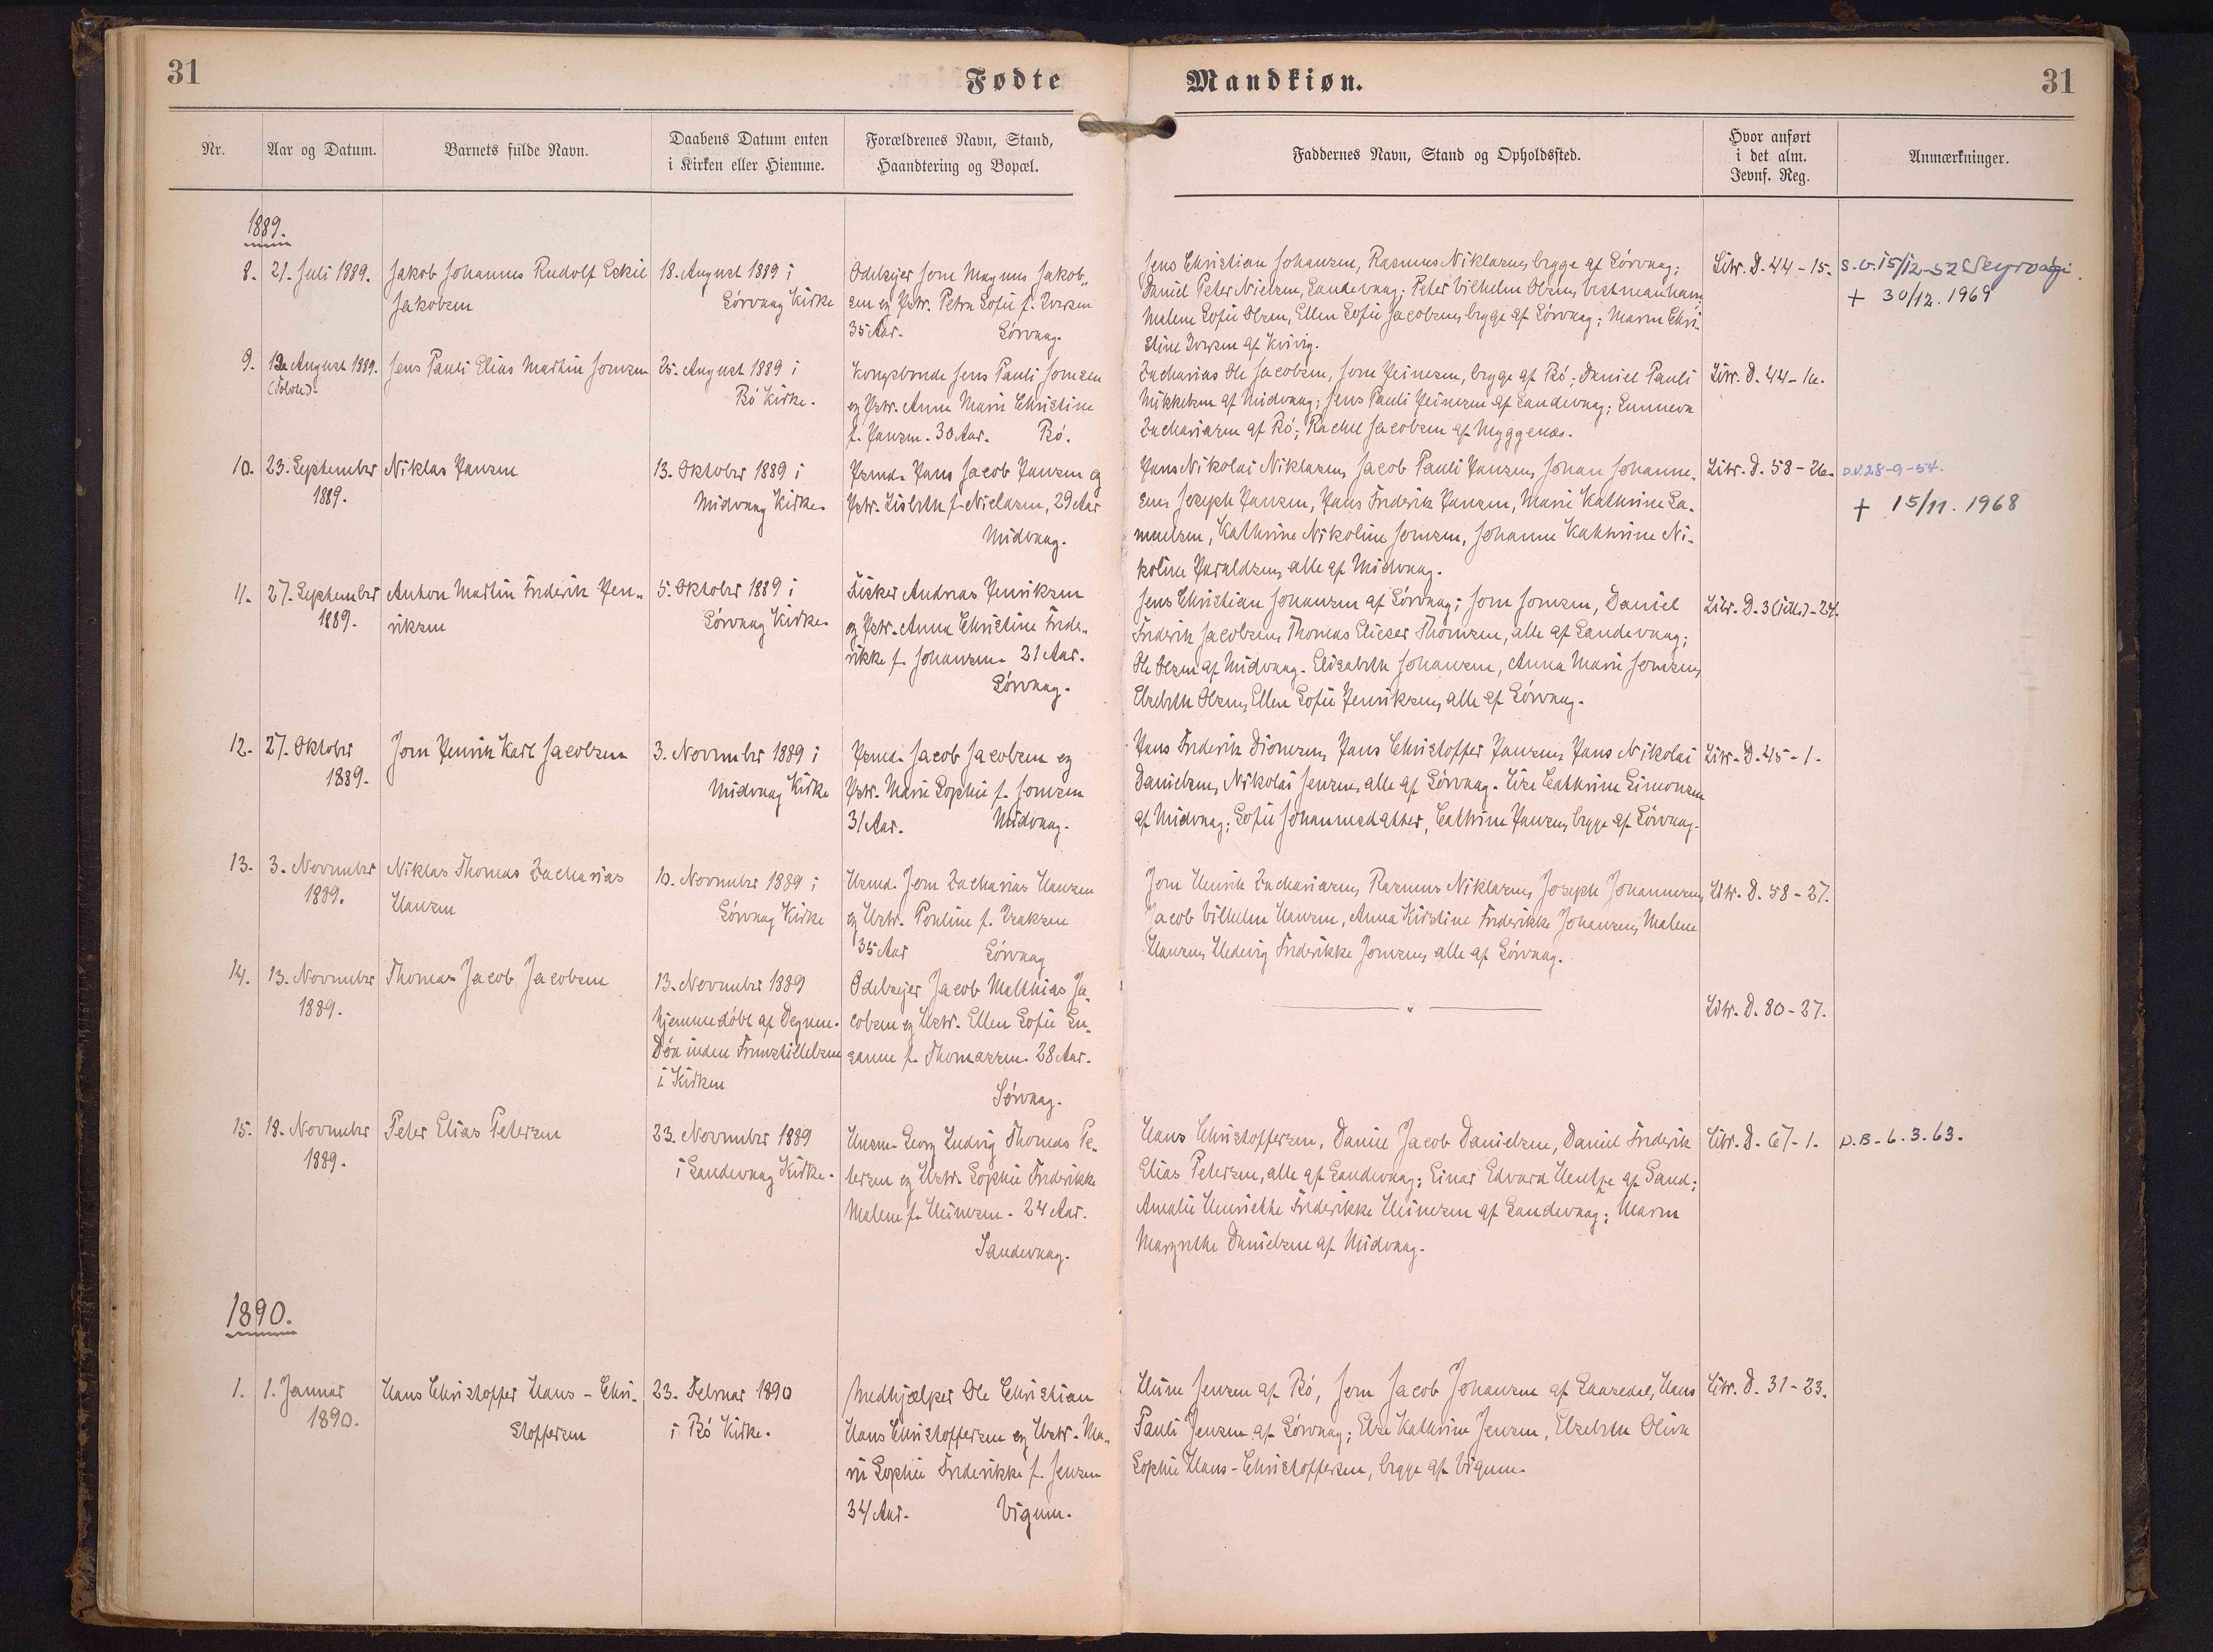 31
Fødte
Mandkiøn.
31
Nr.
Aar og Datum.
Barnets fulde Navn.
Daabens Datum enten
i Kirken eller Hiemme.
Forældrenes Navn, Stand,
Haandtering og Bopæl.
Faddernes Navn, Stand og Opholdssted.
Hvor anført
i det alm.
Jevnf. Reg.
Anmærkninger.
1889.
8.
21. Juli 1889.
Jakob Johannes Rudolf Eskil
Jakobsen
18. August 1889 i
Sórvaag Kirke
Odelsejer Jorn Magnus Jakob„
sen og Hstr. Petra Sofie f. Iversen
35 Aar. Sórvaag.
Jens Christian Johansen, Rasmus Niklasen, begge af Sórvaag;
Daniel Peter Nielsen, Sandevaag; Peter Vilhelm Olsen, Vestmanhavn;
Malene Sofie Olsen, Ellen Sofie Jacobsen, begge af Sórvaag; Maren Chri„
stine Iversen af Kvivig.
Litr. D. 44 - 15.
S.v. 15/12-52 Seyrvági.
+ 30/12. 1969
9.
August 1889.
Jens Pauli Elias Martin Joensen
25. August 1889 i
Bó Kirke.
Kongsbonde Jens Pauli Joensen
og Hstr. Anne Marie Christine
f. Hansen. 30 Aar. Bó.
Zacharias Ole Jacobsen, Jorn Heinesen, begge af Bó; Daniel Pauli
Mikkelsen af Midvaag; Jens Pauli Heinesen af Sandevaag; Sunneva
Zachariasen af Bó; Rachel Jacobsen af Myggenæs.
Litr. D. 44 - 16.
10.
23. September
1889.
Niklas Hansen
13. Oktober 1889 i
Midvaag Kirke.
Hsmd. Hans Jacob Hansen og
Hstr. Lisbeth f. Nielasen, 29 Aar
Midvaag.
Hans Nikolai Niklasen, Jacob Pauli Hansen, Johan Johanne„
sen, Joseph Hansen, Hans Frederik Hansen, Marie Kathrine Sa„
muelsen, Kathrine Nikoline Joensen, Johanne Kathrine Ni„
koline Haraldsen, alle af Midvaag.
Litr. D. 58 - 26.
D.V. 28-9-54.
+ 15/11. 1968
11.
27. September
1889.
Anton Martin Frederik Hen„
riksen
5. Oktober 1889 i
Sórvaag Kirke.
Fisker Andreas Henriksen
og Hstr. Anna Christine Frede„
rikke f. Johansen. 21 Aar.
Sórvaag.
Jens Christian Johansen af Sórvaag; Jorn Joensen, Daniel
Frederik Jacobsen, Thomas Elieser Thomsen, alle af Sandevaag;
Ole Olsen af Midvaag. Elisabeth Johansen, Anna Marie Joensen,
Elsebeth Olsen, Ellen Sofie Henriksen, alle af Sórvaag.
12.
27. Oktober
1889.
Jorn Henrik Karl Jacobsen
3. November 1889 i
Midvaag Kirke
Hsmd. Jacob Jacobsen og
Hstr. Marie Sophie f. Joensen
31 Aar. Midvaag.
Hans Frederik Dionesen, Hans Christoffer Hansen, Hans Nikolai
Danielsen, Nikolai Jensen, alle af Sórvaag. Lise Cathrine Simonsen
af Midvaag; Sofie Johannesdatter, Cathrine Hansen, begge af Sórvaag.
Litr. D. 45 - 1.
13.
3. November
1889.
Niklas Thomas Zacharias
Hansen
10. November 1889 i
Sórvaag Kirke
Husmd. Jorn Zacharias Hansen
og Hstr. Pouline f. Isaksen
35 Aar Sórvaag
Jorn Henrik Zachariasen, Rasmus Niklasen, Joseph Johannesen,
Jacob Vilhelm Hansen, Anna Kirstine Frederikke Johansen, Malene
Hansen, Hedevig Frederikke Joensen, alle af Sórvaag.
Litr. D. 58 - 27.
14.
13. November
1889.
Thomas Jacob Jacobsen
13. November 1889
hjemmedóbt af Degnen.
Dón inden Fremstillelsen
i Kirken
Odelsejer Jacob Matthias Ja„
cobsen og Hstr. Ellen Sofie Su„
sanne f. Thomassen. 28 Aar.
Sórvaag.
— „ —
Litr. D. 80 - 27.
15.
18. November
1889.
Peter Elias Petersen
23. November 1889
i Sandevaag Kirke.
Husm. Georg Ludvig Thomas Pe„
tersen og Hstr. Sophie Frederikke
Malene f. Heinesen. 24 Aar.
Sandevaag.
Hans Christoffersen, Daniel Jacob Danielsen, Daniel Frederik
Elias Petersen, alle af Sandevaag; Einar Edvard Hentze af Sand;
Amalie Henriette Frederikke Heinesen af Sandevaag; Maren
Margrethe Danielsen af Midvaag.
Litr. D. 67 - 1.
D.B. 6.3.63.
1890.
1.
1. Januar
1890.
Hans Christoffer Hans - Chri„
stoffersen
23. Februar 1890
i Bó Kirke.
Medhjælper Ole Christian
Hans Christoffersen og Hstr. Ma„
rie Sophie Frederikke f. Jensen
34 Aar. Vigum.
Heine Jensen af Bó, Jorn Jacob Johansen af Gaasedal, Hans
Pauli Jensen af Sórvaag; Else Kathrine Jensen, Elsebeth Oliva
Sophie Hans-Christoffersen, begge af Vigum.
Litr. D. 31 - 23.